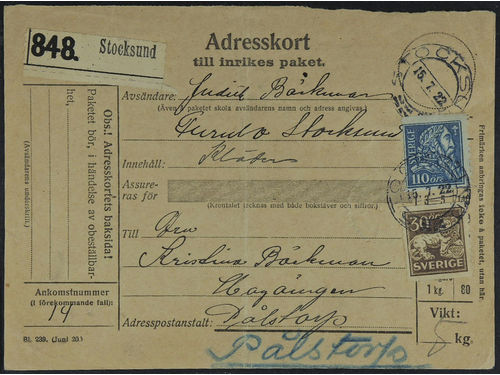 848. Stocksund
Adresskort
till inrikes paket.
STOCKSUND
15.7.22
Avsändare: Judith Bäckman
(Även i paketet skola avsändarens namn och adress angivas.)
Stocksund
Innehåll: Kläder
Assure-
ras för
(Krontalet tecknas med både bokstäver och siffror.)
Till Fru
Kristina Bäckman
Adresspostanstalt: Pålstorp
Pålstorp
Obs.! Adresskortets baksida!
Paketet bör, i händelse av obeställbar-
het,
(Avsändarens underskrift.)
Ankomstnummer
(i förekommande fall):
14
Bl. 239. (Juni 20.)
SVERIGE
110 ÖRE
30
SVERIGE
Frimärken anbringas icke å paketet, utan här.
1 kg. 80
Vikt:
5 kg.